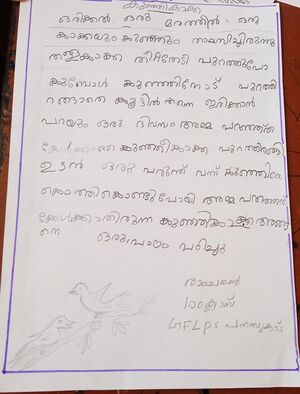 കുഞ്ഞികാക്ക
ഒരിക്കൽ ഒരു മരത്തിൽ ഒരു
കാക്കയും കുഞ്ഞും താമസിച്ചിരുന്നു
തള്ളകാക്ക തീറ്റതേടി പുറത്തുപോ
കുമ്പോൾ കുഞ്ഞിനോട് പുറത്തി
റങ്ങാതെ കൂട്ടിൽ തന്നെ ഇരിക്കാൻ
പറയും ഒരു ദിവസം അമ്മ പറഞ്ഞത്
കേൾക്കാതെ കുഞ്ഞികാക്ക പുറത്തിറങ്ങി
ഉടൻ ഒരു പരുന്ത് വന്ന് കുഞ്ഞിനെ
കൊത്തികൊണ്ടുപോയി അമ്മ പറഞ്ഞത്
കേൾക്കാതിരുന്ന കുഞ്ഞികാക്ക അങ്ങ
നെ ഒരുപാഠം പഠിച്ചു
രാംചരൺ
1ാം ക്ലാസ്
GFLPS പനമ്പുകാട്